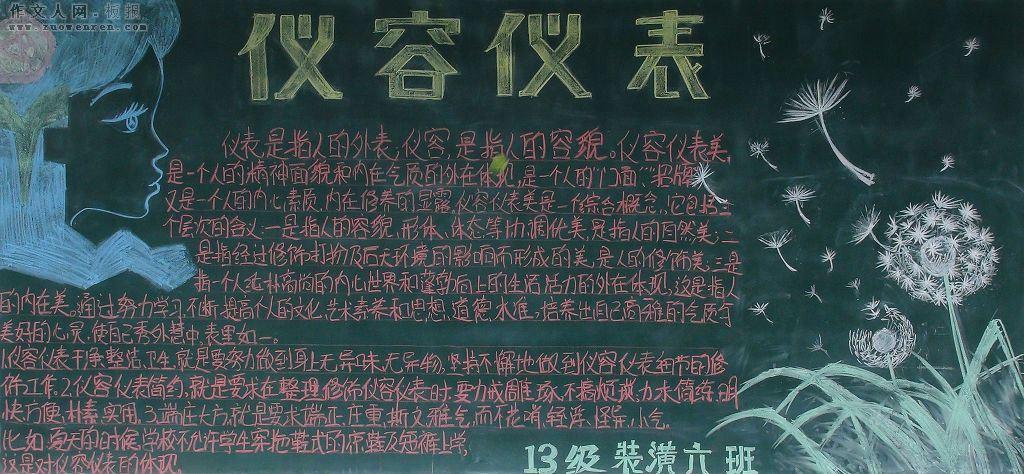 作文人网·板报
www.zuowenren.com
仪容仪表
仪表,是指人的外表,仪容,是指人的容貌。仪容仪表美,
是一个人的精神面貌和内在气质的外在体现,是一个人的“门面”、“招牌”
又是一个人的内心素质,内在修养的显露,仪容仪表美是一个综合概念,它包括三
个层次的含义:一是指人的容貌、形体、体态等协调优美,是指人的自然美;二
是指经过修饰打扮及后天环境的影响而形成的美,是人的修饰美;三是
指一个人纯朴高尚的内心世界和蓬勃向上的生活活力的外在体现,这是指人
的内在美。通过努力学习,不断提高个人的文化,艺术素养和思想、道德水准,培养出自己高雅的气质与
美好的心灵,使自己秀外慧中,表里如一。
1仪容仪表干净整洁,卫生,就是要努力做到身上无异味,无异物,坚持不懈地做到仪容仪表细节的修
饰工作,2,仪容仪表简约,就是要求在整理修饰仪容仪表时,要力戒雕琢,不搞烦琐,力求简练,明
快方便,朴素,实用,3端庄大方,就是要求端正庄重,斯文雅气,而不花哨,轻浮,怪异,小气。
比如,夏天的时候,学校不允许学生穿拖鞋式的凉鞋及短裤上学,
这是对仪容仪表的体现。
13级装潢六班